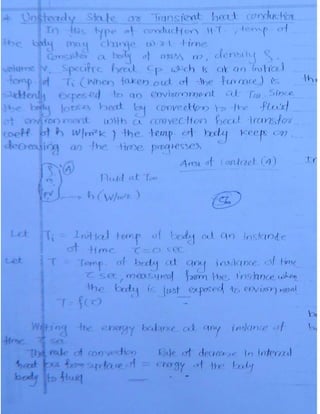 * Unsteady State or Transient heat conduction
In this type of conduction HT, temp of
the body may change w.r.t time
Consider a body of mass m, density ρ,
volume V, Specific heat Cp which is at an initial
temp of Ti (when taken out of the furnace) is
suddenly exposed to an environment at T∞. Since
the body looses heat by convection to the fluid
of environment with a convection heat transfer
coeff of h W/m²K, the temp of body keeps on
decreasing as the time progresses
Area of contact (A)
A
Fluid at T∞
h (W/m²K)
Let Ti = Initial temp of body at an instance
of time τ = 0 sec
Let T = Temp. of body at any instance of time
τ sec, measured from the instance when
the body is just exposed to environment
T = f(τ)
Writing the energy balance at any instance of
time τ sec
The rate of convection Rate of decrease in Internal
heat loss from surface of = energy of the body
body to fluid